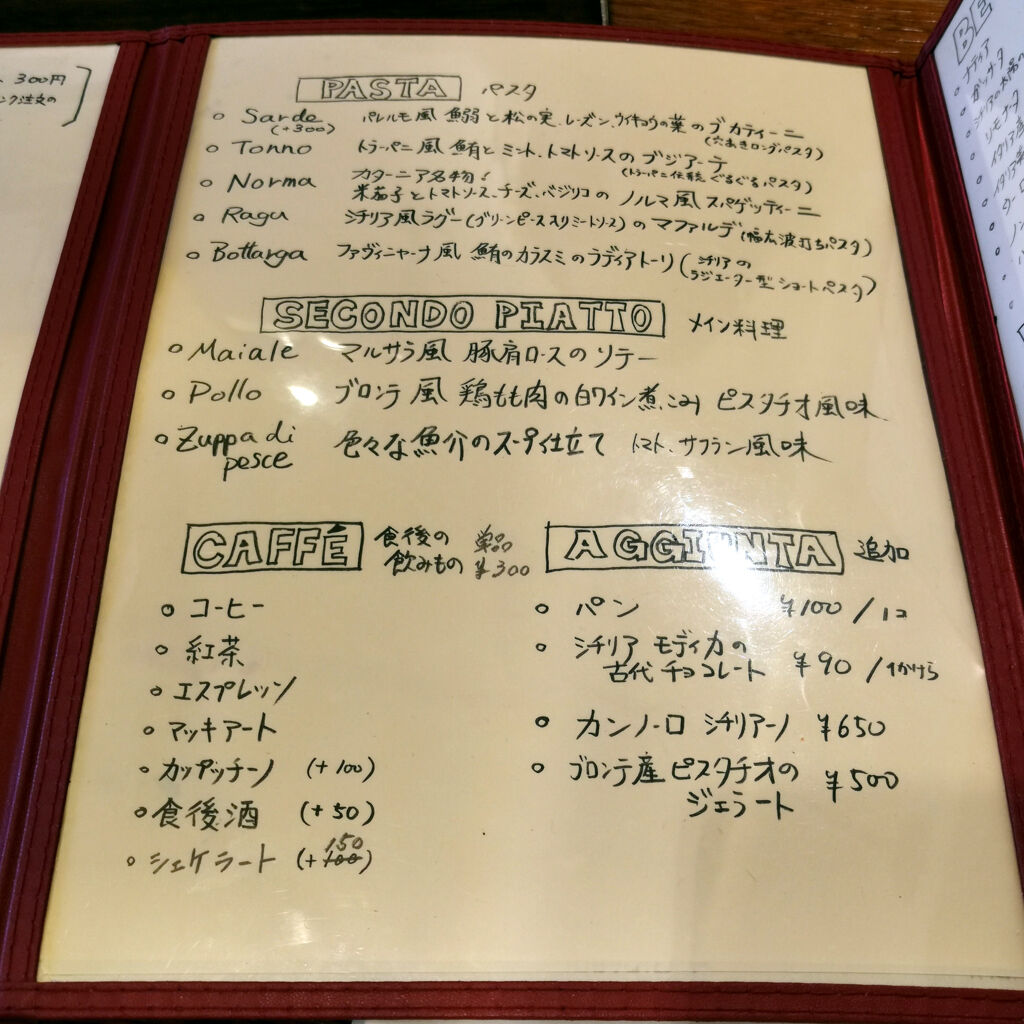 300円
PASTA パスタ
Sarde パレルモ風 鰯と松の実、レーズン、ウイキョウの葉のブカティーニ
(+300) (穴あきロングパスタ)
Tonno トラーパニ風 鮪とミント、トマトソースのブジアーテ
(トラーパニ伝統 ぐるぐるパスタ)
Norma カターニア名物!
米茄子とトマトソース、チーズ、バジリコの ノルマ風 スパゲッティーニ
Ragu シチリア風ラグー(グリーンピース入りミートソース)のマファルデ(幅広波打ちパスタ)
Bottarga ファヴィニャーナ風 鮪のカラスミのラディアトーリ(シチリアの
ラジエーター型 ショートパスタ)
SECONDO PIATTO メイン料理
Maiale マルサラ風 豚肩ロースのソテー
Pollo ブロンテ風 鶏もも肉の白ワイン煮込み ピスタチオ風味
Zuppa di pesce 色々な魚介のスープ仕立て トマト、サフラン風味
CAFFÉ 食後の飲みもの 単品 ¥300
コーヒー
紅茶
エスプレッソ
マッキアート
カップッチーノ (+100)
食後酒 (+50)
シェケラート (+100) 150
AGGIUNTA 追加
パン ¥100/1コ
シチリア モディカの
古代チョコレート ¥90/1かけら
カンノーロ シチリアーノ ¥650
ブロンテ産ピスタチオの
ジェラート ¥500